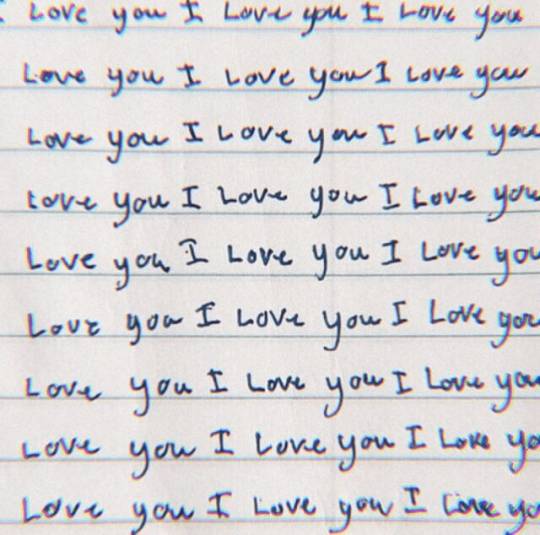 Love you I Love you I Love you
Love you I Love you I Love you
Love you I Love you I Love you
Love you I Love you I Love you
Love you I Love you I Love you
Love you I Love you I Love you
Love you I Love you I Love you
Love you I Love you I Love yo
Love you I Love you I Love yo